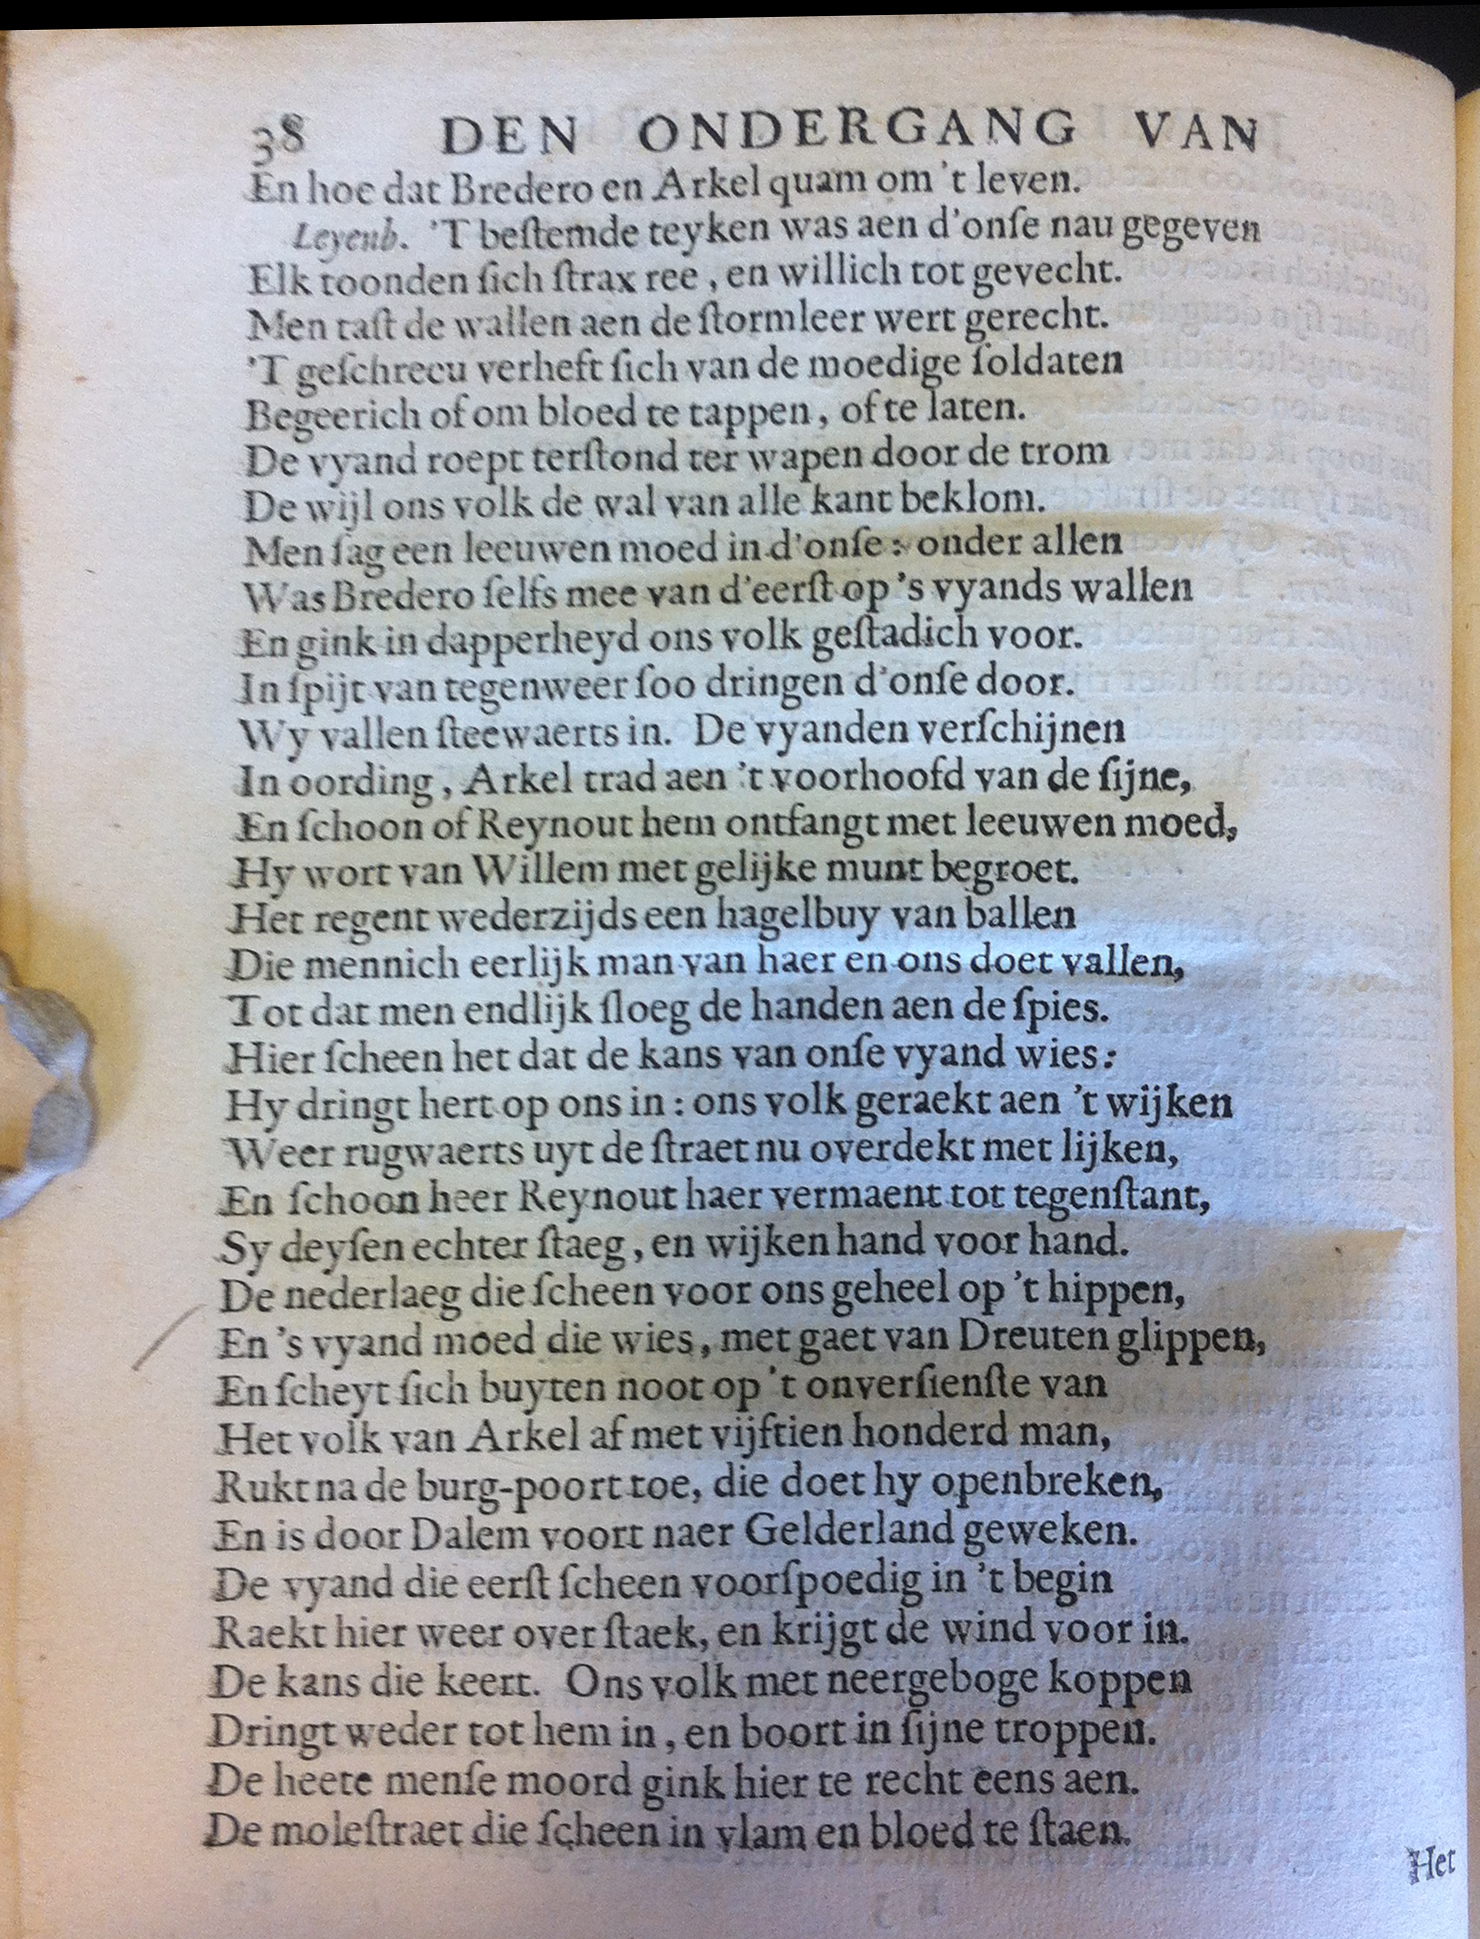 38 DEN ONDERGANG VAN
En hoe dat Bredero en Arkel quam om 't leven.
Leyenb. 'T beſtemde teyken was aen d'onſe nau gegeven
Elk toonden ſich ſtrax ree, en willich tot gevecht.
Men taſt de wallen aen de ſtormleer wert gerecht.
'T geſchreeu verheft ſich van de moedige ſoldaten
Begeerich of om bloed te tappen, of te laten.
De vyand roept terſtond ter wapen door de trom
De wijl ons volk de wal van alle kant beklom.
Men ſag een leeuwen moed in d'onſe: onder allen
Was Bredero ſelfs mee van d'eerſt op 's vyands wallen
En gink in dapperheyd ons volk geſtadich voor.
In ſpijt van tegenweer ſoo dringen d'onſe door.
Wy vallen ſteewaerts in. De vyanden verſchijnen
In oording, Arkel trad aen 't voorhoofd van de ſijne,
En ſchoon of Reynout hem ontfangt met leeuwen moed,
Hy wort van Willem met gelijke munt begroet.
Het regent wederzijds een hagelbuy van ballen
Die mennich eerlijk man van haer en ons doet vallen,
Tot dat men endlijk ſloeg de handen aen de ſpies.
Hier ſcheen het dat de kans van onſe vyand wies:
Hy dringt hert op ons in: ons volk geraekt aen 't wijken
Weer rugwaerts uyt de ſtraet nu overdekt met lijken,
En ſchoon heer Reynout haer vermaent tot tegenſtant,
Sy deyſen echter ſtaeg, en wijken hand voor hand.
De nederlaeg die ſcheen voor ons geheel op 't hippen,
En 's vyand moed die wies, met gaet van Dreuten glippen,
En ſcheyt ſich buyten noot op 't onverſienſte van
Het volk van Arkel af met vijftien honderd man,
Rukt na de burg-poort toe, die doet hy openbreken,
En is door Dalem voort naer Gelderland geweken.
De vyand die eerſt ſcheen voorſpoedig in 't begin
Raekt hier weer over ſtaek, en krijgt de wind voor in.
De kans die keert. Ons volk met neergeboge koppen
Dringt weder tot hem in, en boort in ſijne troppen.
De heete menſe moord gink hier te recht eens aen.
De moleſtraet die ſcheen in vlam en bloed te ſtaen.
Het